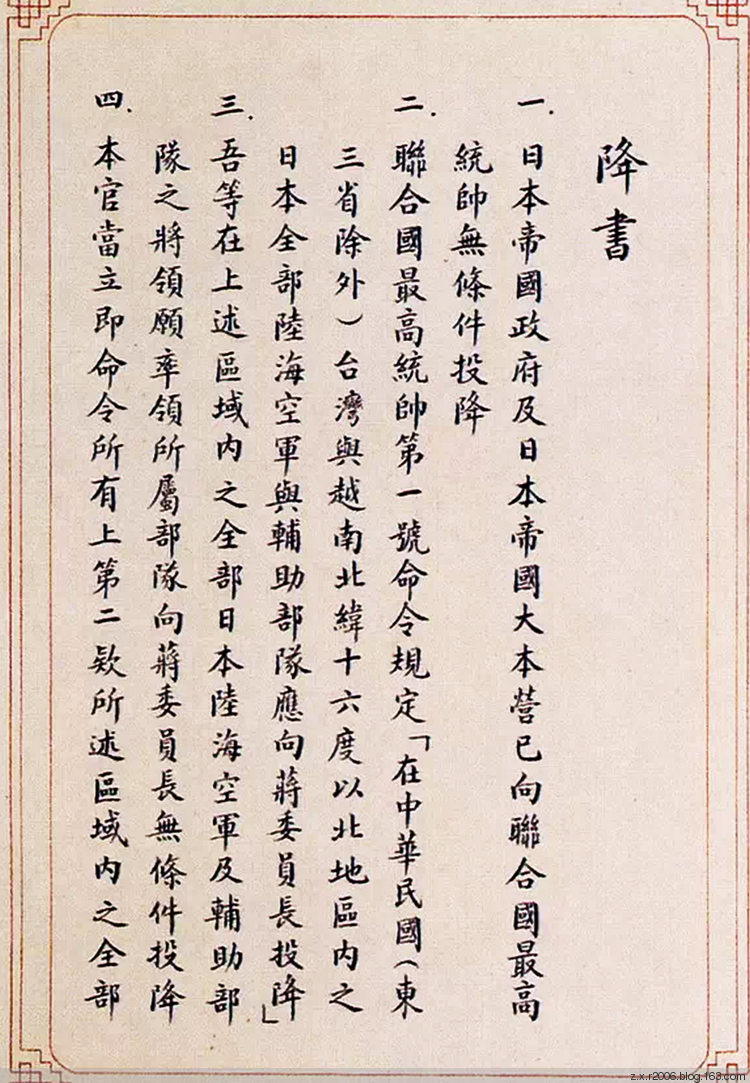 降書
一.日本帝國政府及日本帝國大本營已向聯合國最高
統帥無條件投降
二.聯合國最高統帥第一號命令規定「在中華民國(東
三省除外)台灣與越南北緯十六度以北地區內之
日本全部陸海空軍與輔助部隊應向蔣委員長投降」
三.吾等在上述區域內之全部日本陸海空軍及輔助部
隊之將領願率領所屬部隊向蔣委員長無條件投降
四.本官當立即命令所有上第二款所述區域內之全部
z.x.r2006.blog.163.com